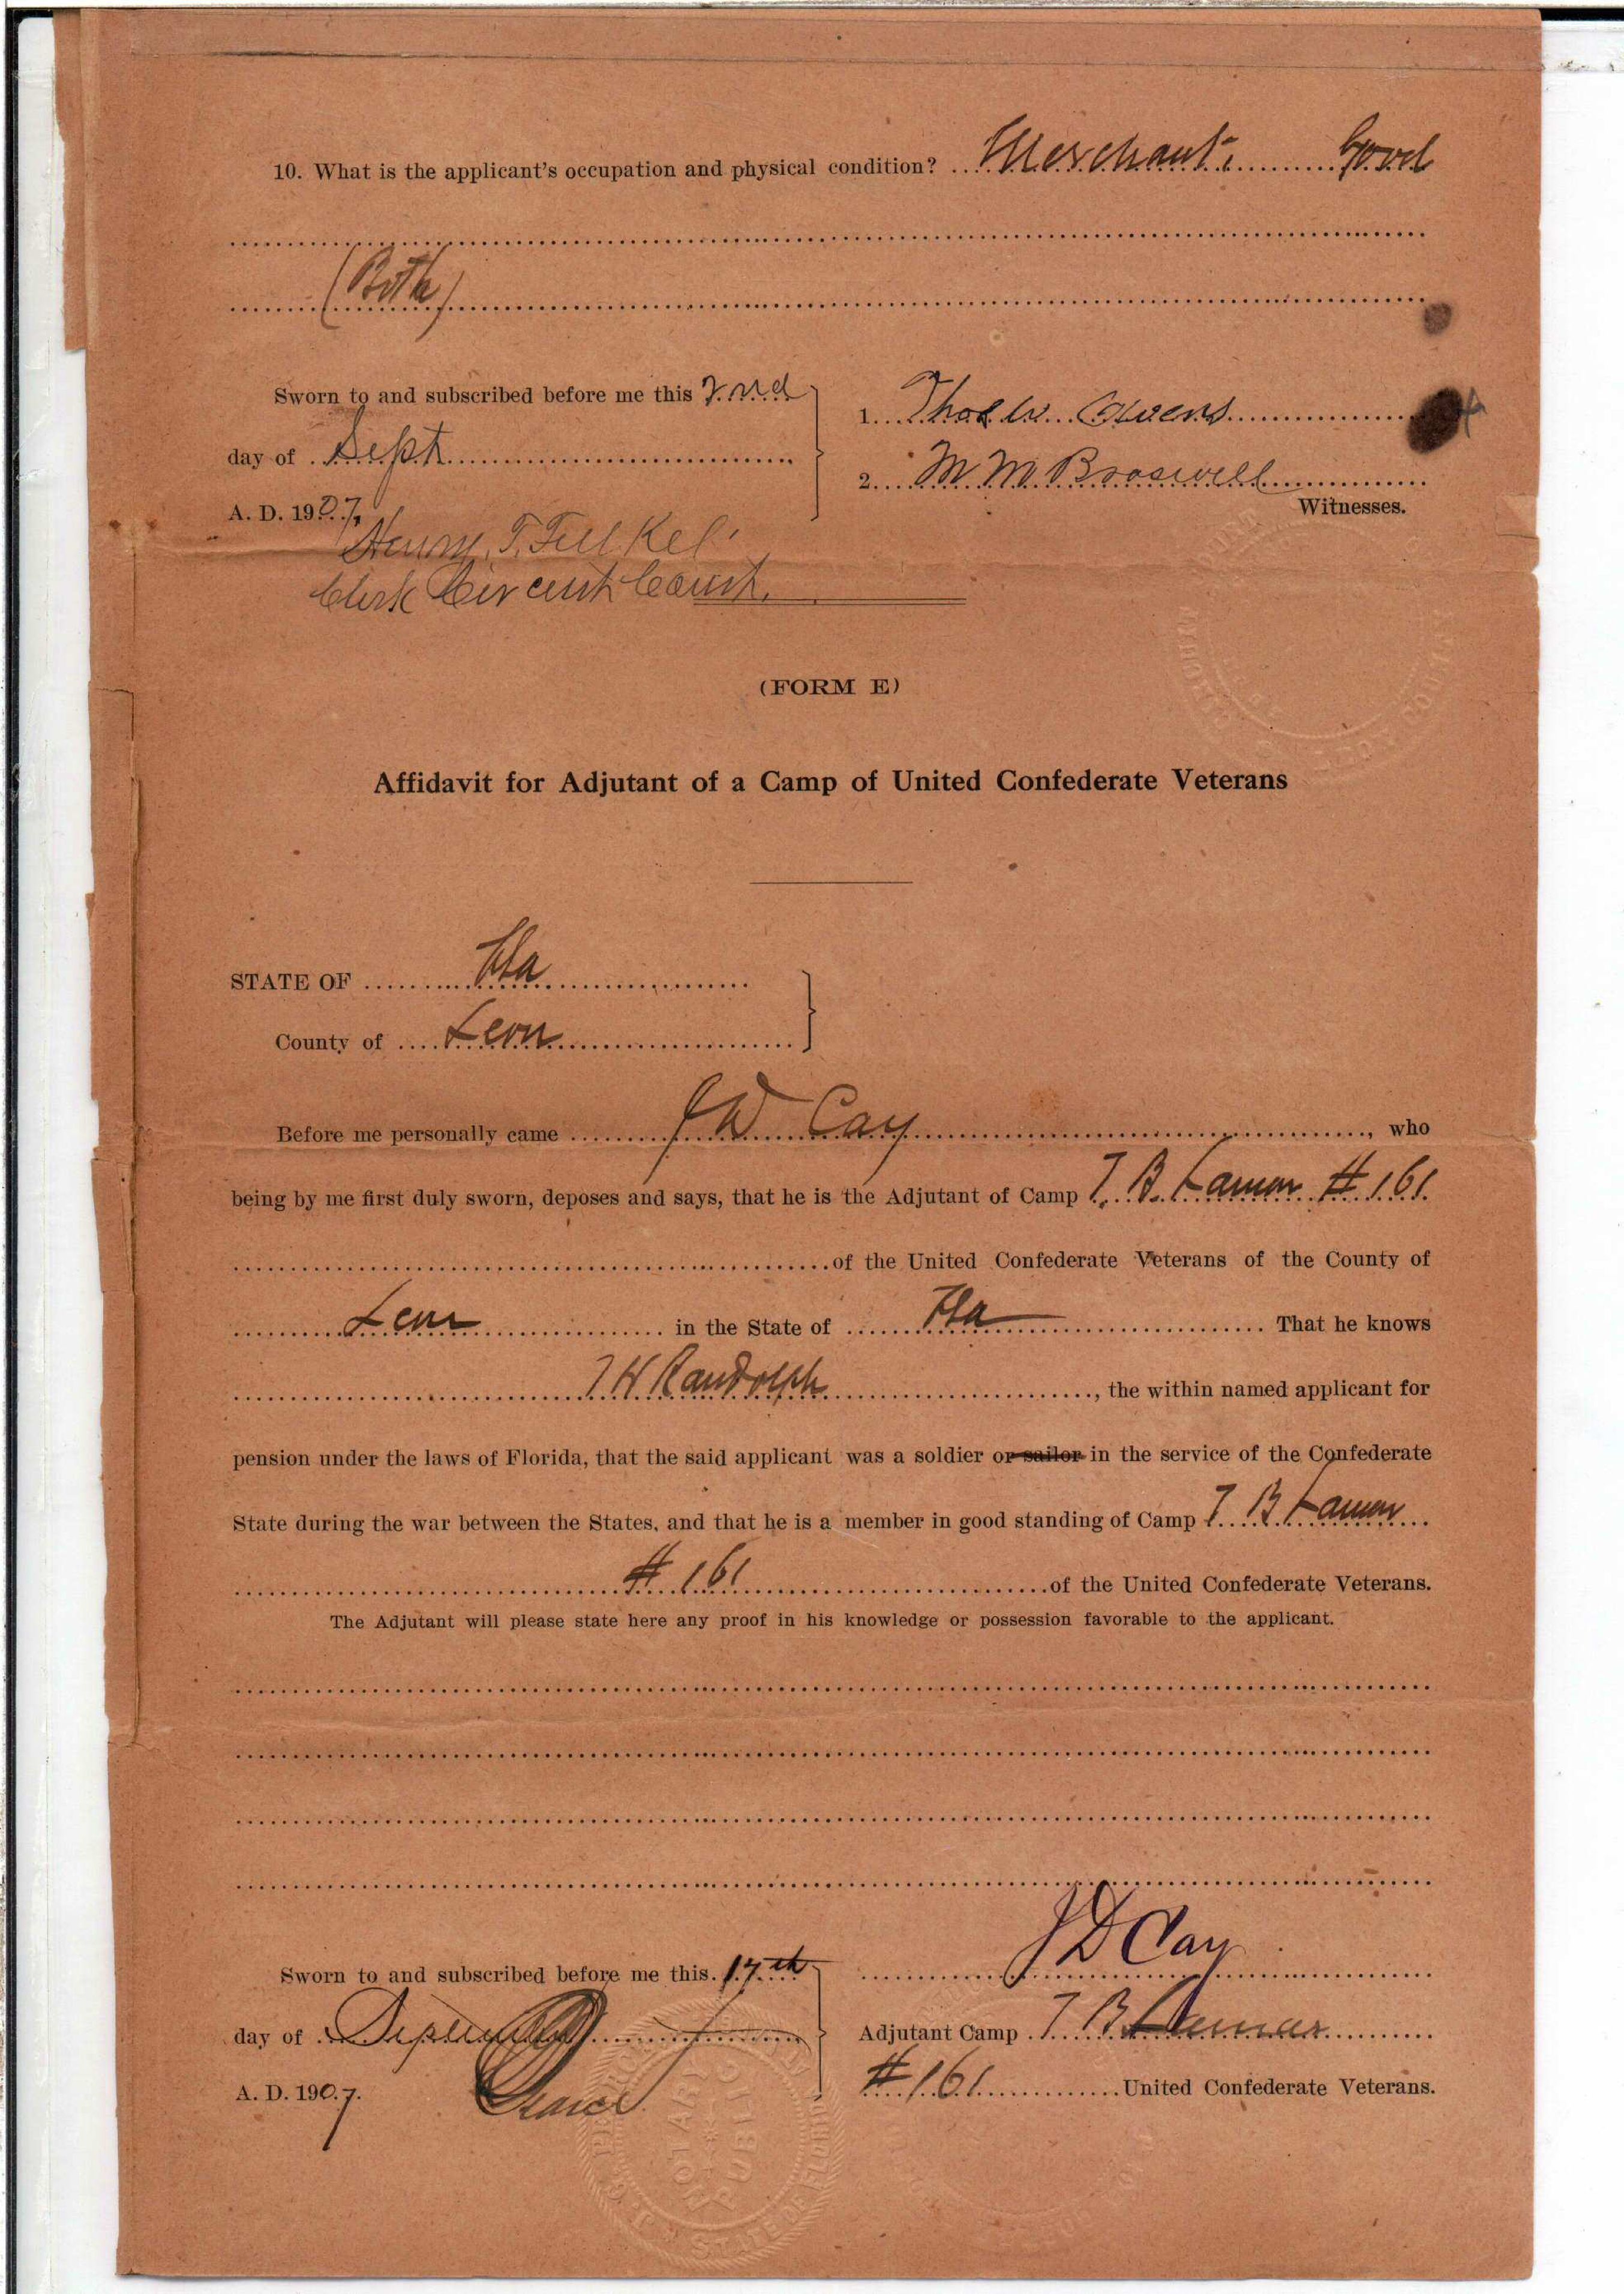 10. What is the applicant's occupation and physical condition? Merchant. Good
(Both)
Sworn to and subscribed before me this 2nd
day of Sept
A. D. 1907,
1. Thos W. Owens
2. M. M. Braswell
Witnesses.
Henry T. Felkel
Clerk Circuit Court.
(FORM E)
Affidavit for Adjutant of a Camp of United Confederate Veterans
STATE OF Fla
County of Leon
Before me personally came J D Cay, who
being by me first duly sworn, deposes and says, that he is the Adjutant of Camp T. B. Lamar # 161.
of the United Confederate Veterans of the County of
Leon in the State of Fla That he knows
T H Randolph, the within named applicant for
pension under the laws of Florida, that the said applicant was a soldier or sailor in the service of the Confederate
State during the war between the States, and that he is a member in good standing of Camp T B Lamar
# 161 of the United Confederate Veterans.
The Adjutant will please state here any proof in his knowledge or possession favorable to the applicant.
J D Cay
Sworn to and subscribed before me this 17th
day of September
A. D. 1907.
Adjutant Camp T B Lamar
# 161 United Confederate Veterans.
NOTARY PUBLIC
STATE OF FLORIDA